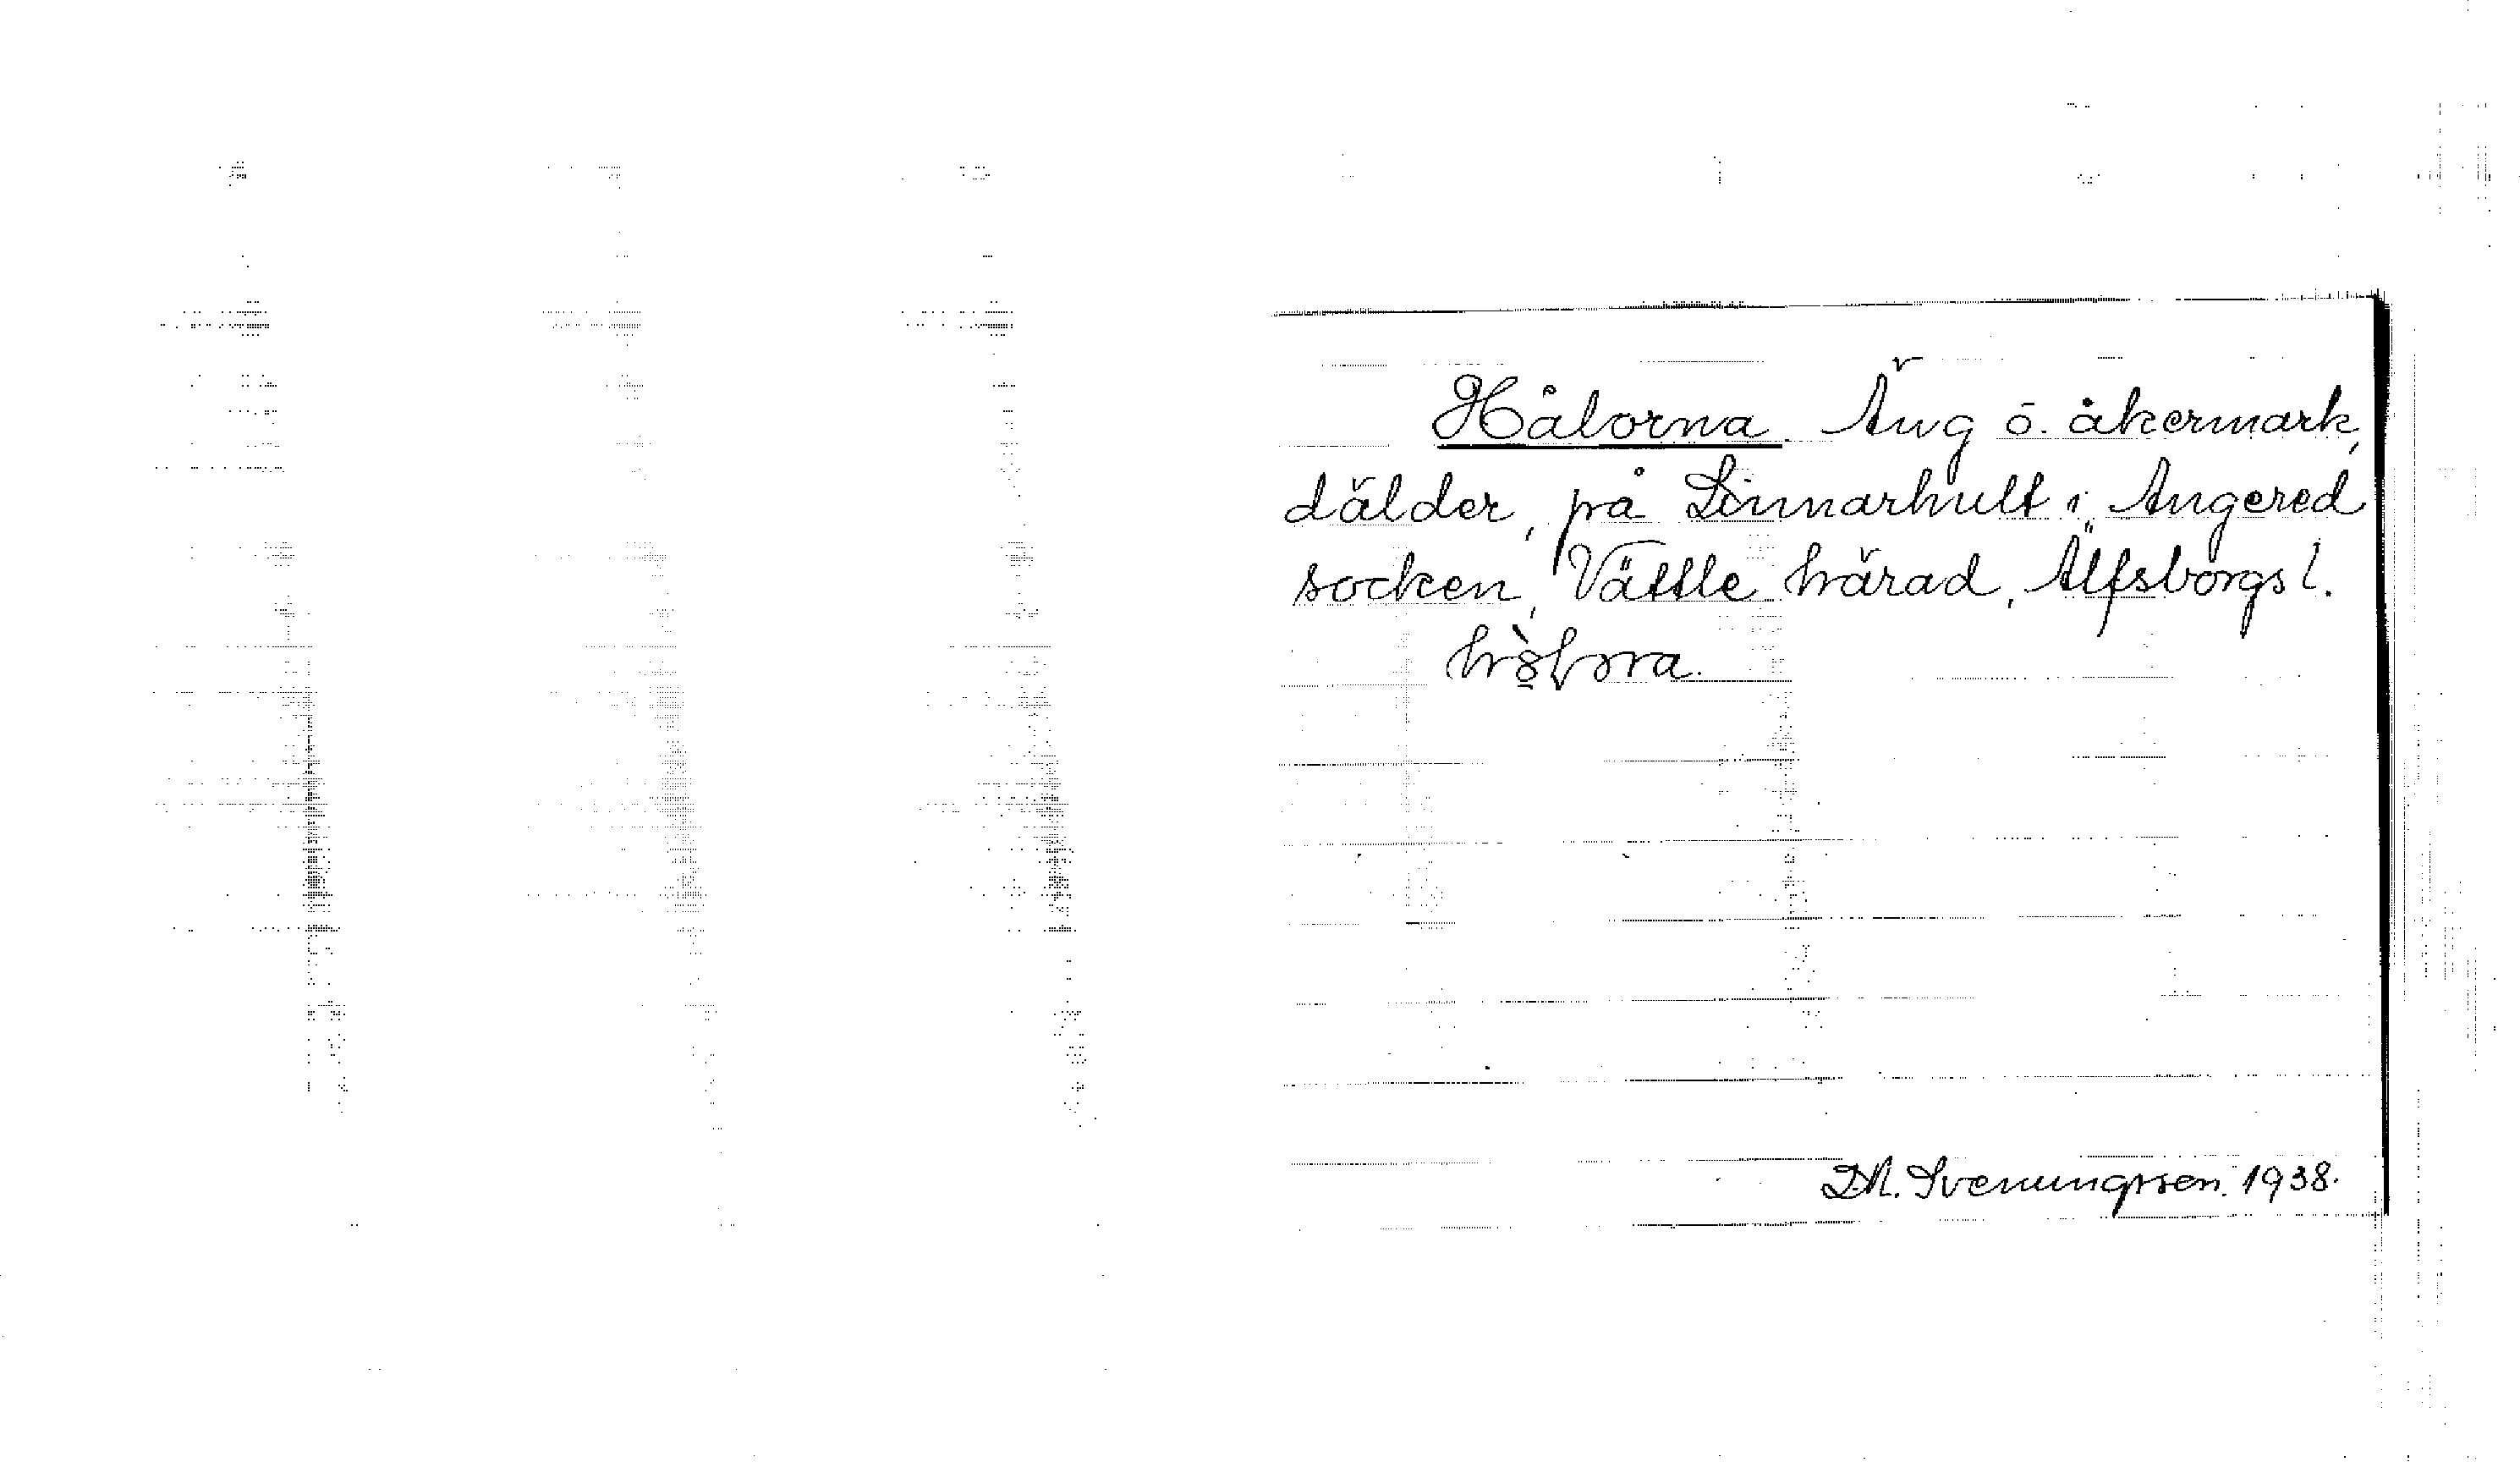 Hålorna Äng o. åkermark,
dälder, på Linnarhult i Angered
socken, Vättle härad, Älfsborgs l.
D.M. Svenungsson. 1938.